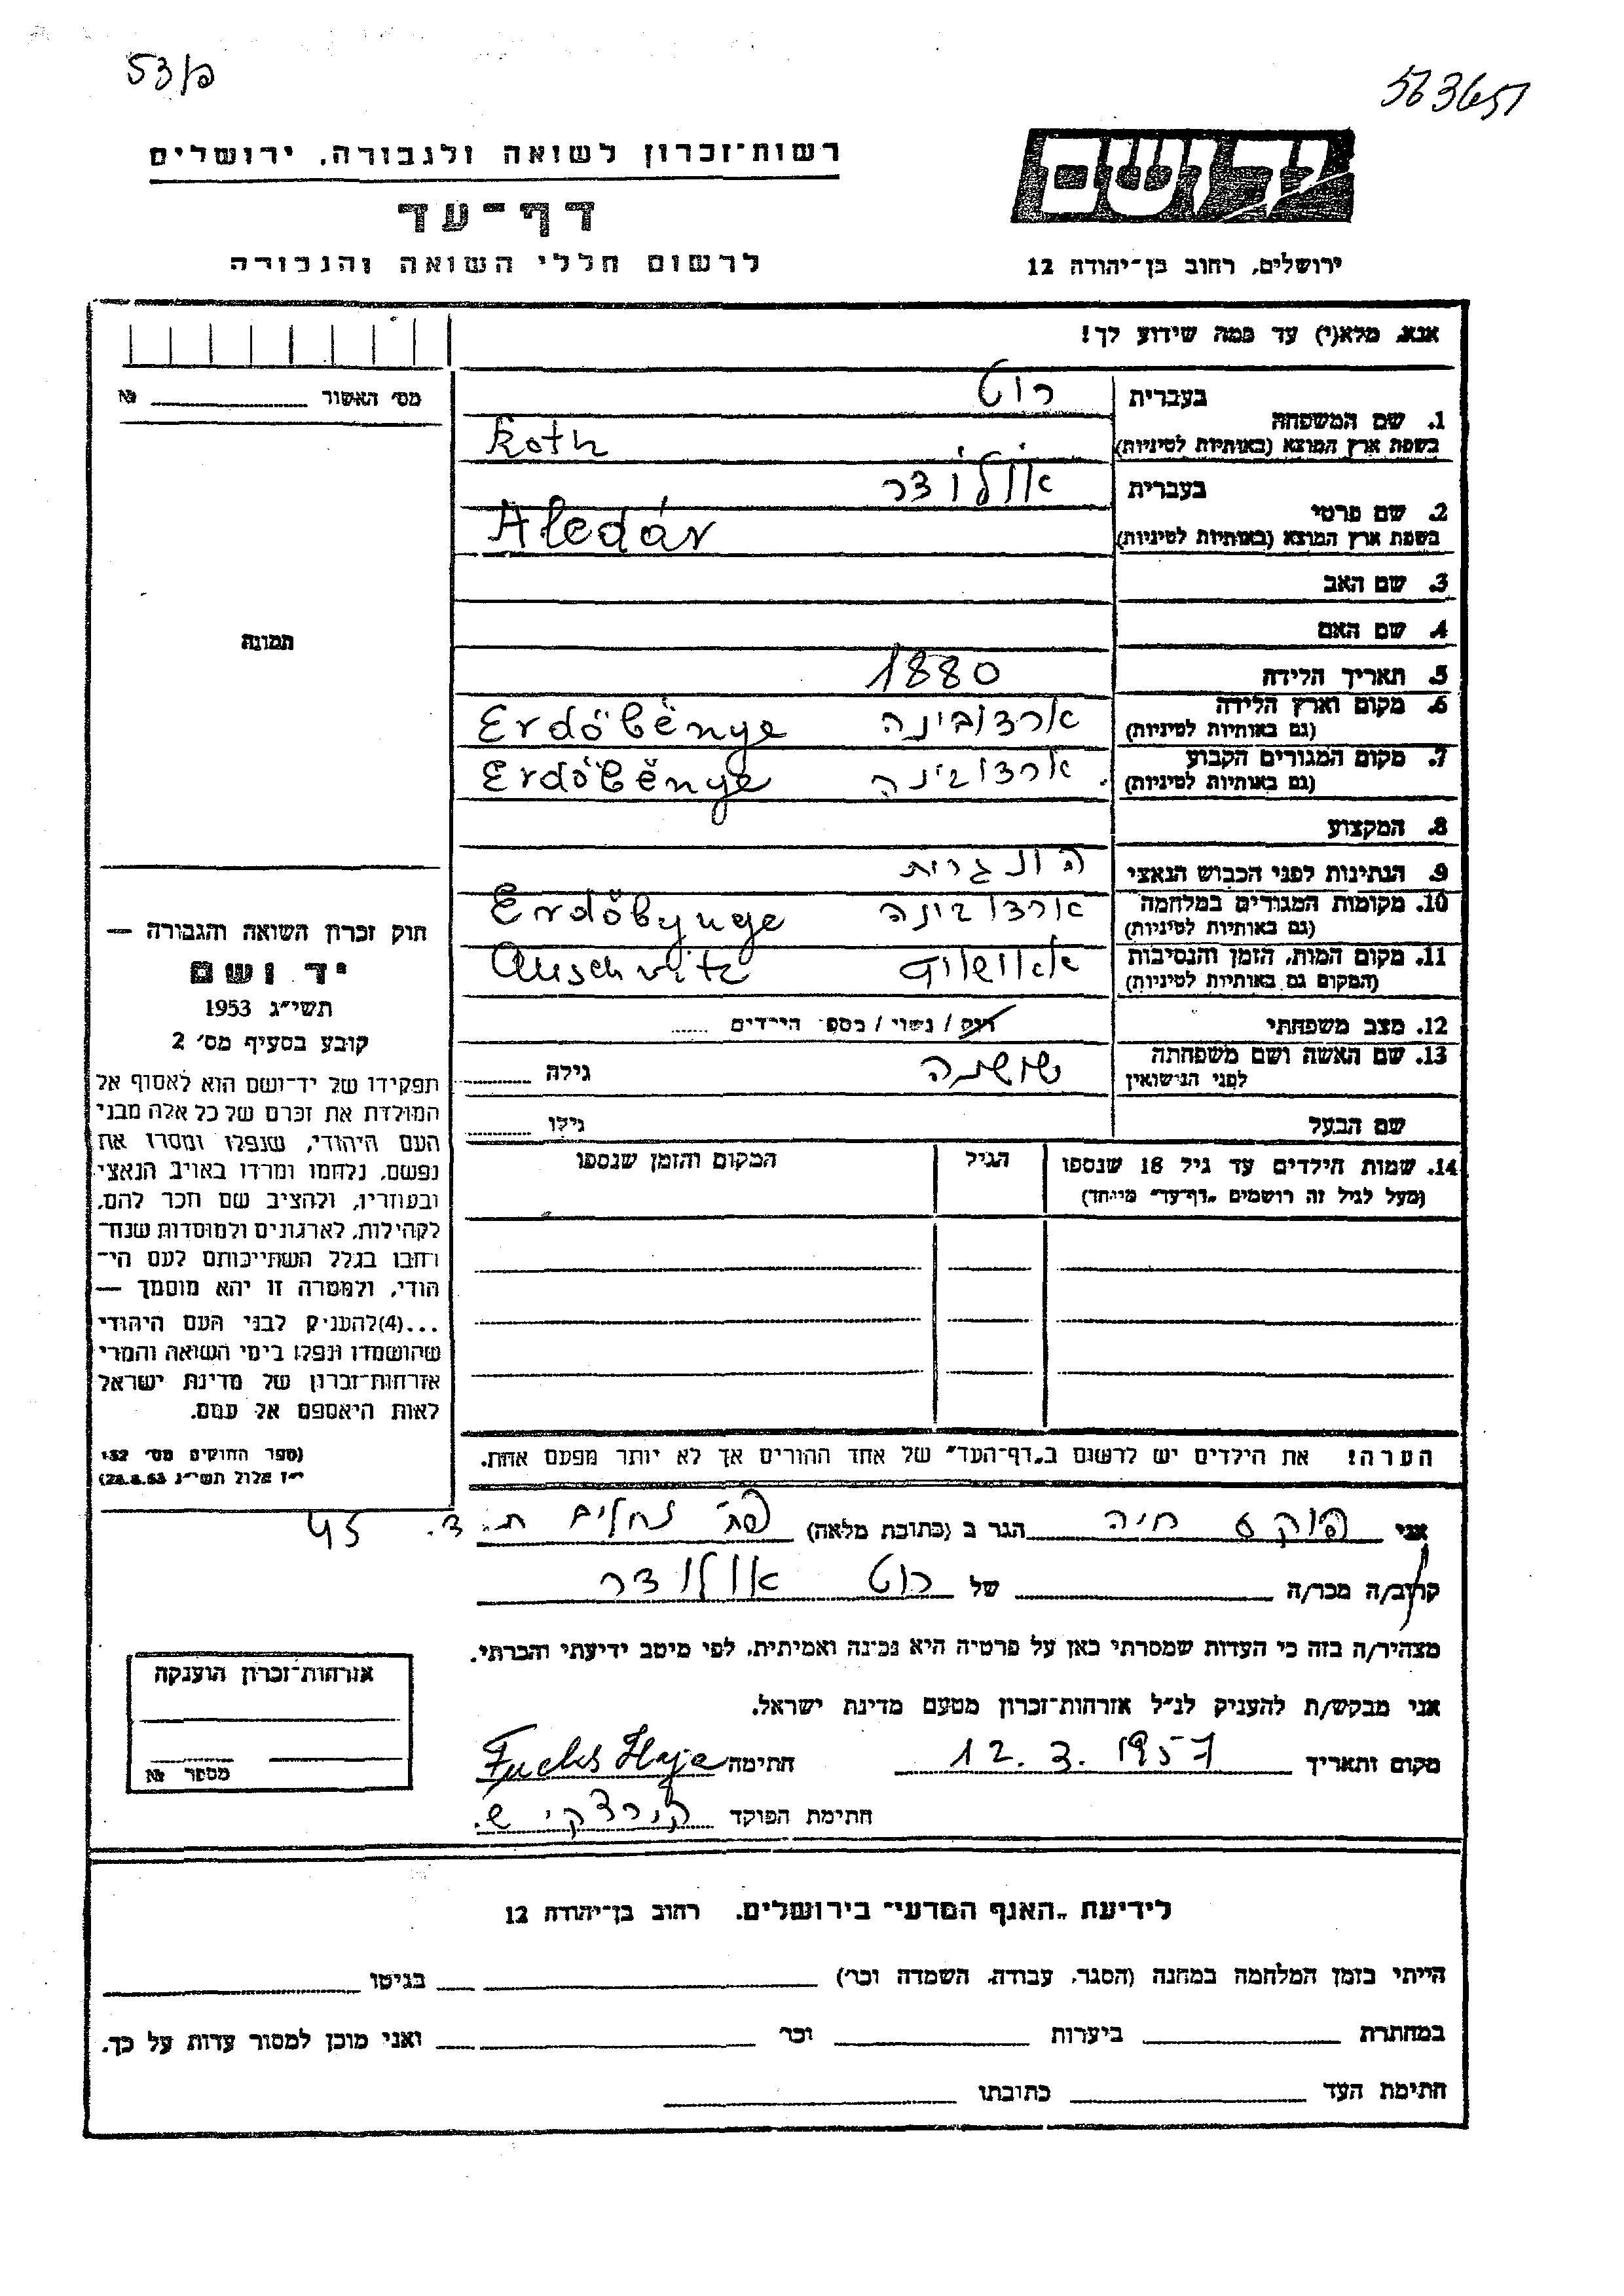 53/פ
563651
רשות־זכרון לשואה ולגבורה, ירושלים
יד ושם
דף־עד
לרשום חללי השואה והגבורה
ירושלים, רחוב בן־יהודה 12
אנא, מלא(י) עד כמה שידוע לך!
מס׳ האשור № 
1. שם המשפחה
בעברית רוט
בשפת ארץ המוצא (באותיות לטיניות) Roth
2. שם פרטי
בעברית אולודר
בשפת ארץ המוצא (באותיות לטיניות) Aledár
3. שם האב
4. שם האם
תמונה
5. תאריך הלידה 1880
6. מקום וארץ הלידה ארדובינה Erdöbënye
(גם באותיות לטיניות)
7. מקום המגורים הקבוע ארדובינה Erdöbënye
(גם באותיות לטיניות)
8. המקצוע
9. הנתינות לפני הכבוש הנאצי הונגרית
10. מקומות המגורים במלחמה ארדובינה Erdöbynye
(גם באותיות לטיניות)
11. מקום המות, הזמן והנסיבות Auschvitz
(המקום גם באותיות לטיניות)
12. מצב משפחתי רוק / נשוי / מספר הילדים
13. שם האשה ושם משפחתה שושנה גילה
לפני הנישואין
שם הבעל גילו
14. שמות הילדים עד גיל 18 שנספו הגיל המקום והזמן שנספו
(מעל לגיל זה רושמים „דף־עד״ מיוחד)
חוק זכרון השואה והגבורה —
יד ושם
תשי״ג 1953
קובע בסעיף מס׳ 2
תפקידו של יד־ושם הוא לאסוף אל
המולדת את זכרם של כל אלה מבני
העם היהודי, שנפלו ומסרו את
נפשם, נלחמו ומרדו באויב הנאצי
ובעוזריו, ולהציב שם וזכר להם,
לקהילות, לארגונים ולמוסדות שנח־
רבו בגלל השתייכותם לעם הי־
הודי, ולמטרה זו יהא מוסמך —
...(4)להעניק לבני העם היהודי
שהושמדו ונפלו בימי השואה והמרי
אזרחות־זכרון של מדינת ישראל
לאות היאספם אל עמם.
(ספר החוקים מס׳ 132
י״ז אלול תשי״ג 28.8.53)
הערה! את הילדים יש לרשום ב„דף־העד״ של אחד ההורים אך לא יותר מפעם אחת.
אני פוקס חיה הגר ב (כתובת מלאה) נחלים ת. ד. 45
קרוב/ה מכר/ה של רוט אולודר
מצהיר/ה בזה כי העדות שמסרתי כאן על פרטיה היא נכונה ואמיתית, לפי מיטב ידיעתי והכרתי.
אני מבקש/ת להעניק לנ״ל אזרחות־זכרון מטעם מדינת ישראל.
מקום ותאריך 12. 3. 1957 חתימה Fuchs Haja
חתימת הפוקד
אזרחות־זכרון הוענקה
מספר №
לידיעת „האגף המדעי״ בירושלים, רחוב בן־יהודה 12
הייתי בזמן המלחמה במחנה (הסגר, עבודה, השמדה וכר׳) בגיטו
במחתרת ביערות וכר׳ ואני מוכן למסור עדות על כך.
חתימת העד כתובתו